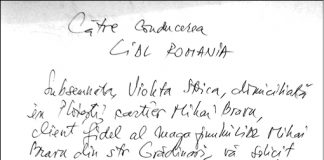 Către conducerea
LIDL ROMANIA
Subsemnata, Violeta Stoica, domiciliată
în Ploiești cartier Mihai Bravu,
client fidel al magazinului Lidl Mihai
Bravu din str Grădinari, vă solicit